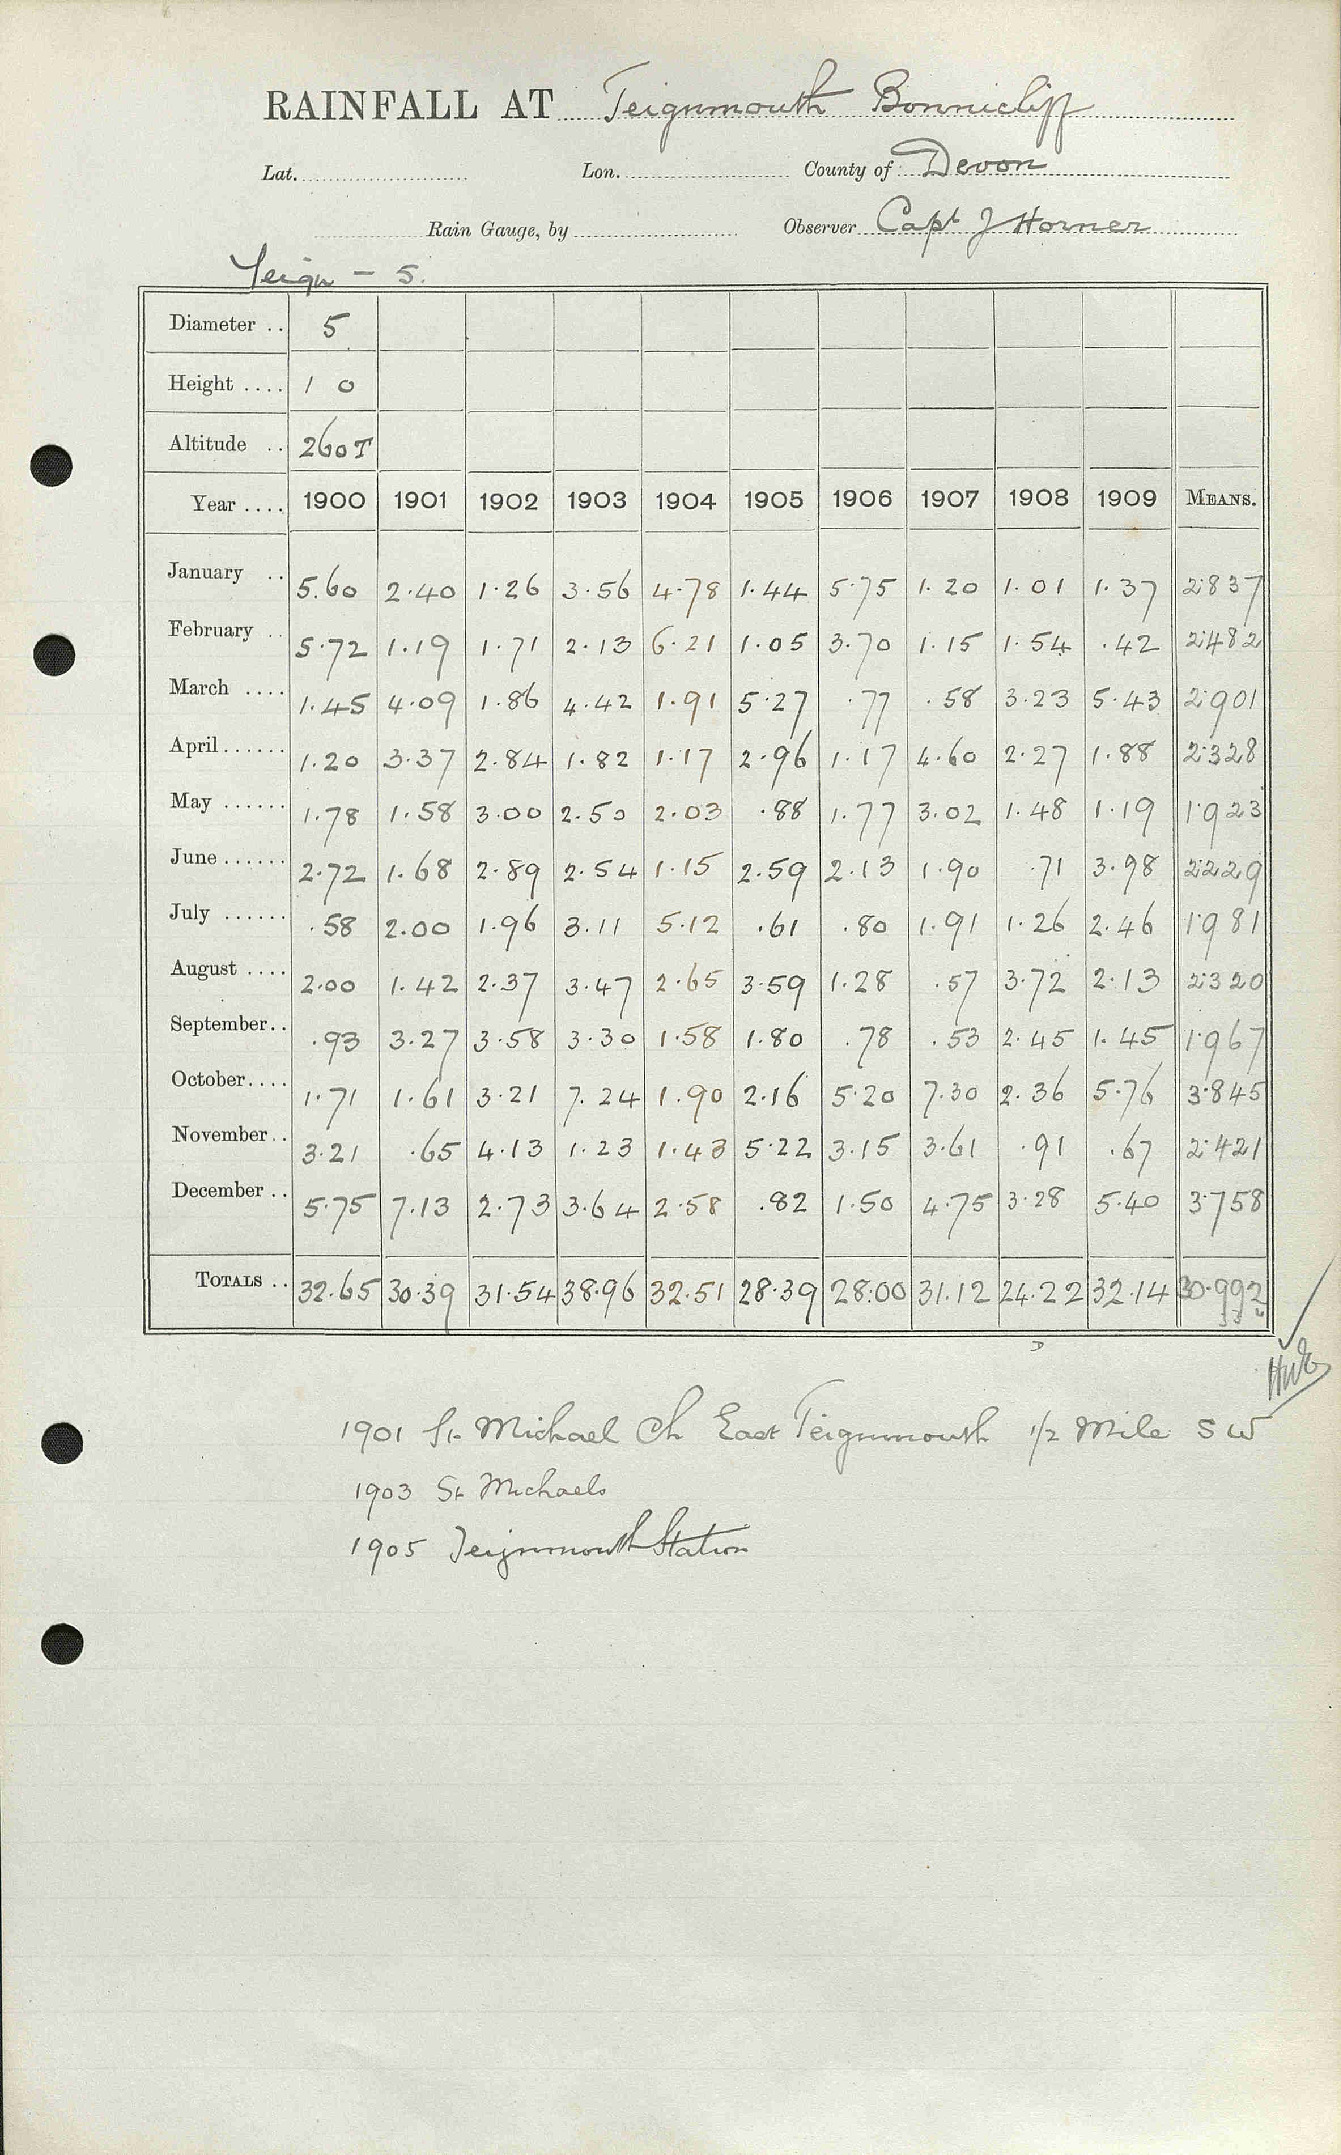 RAINFALL AT Teignmouth Bonnicliff
Lat. Lon. County of Devon
Rain Gauge, by Observer Capt J Horner
Teign - 5.
Diameter .. 5
Height .... 1 0
Altitude .. 260T
Year .... 1900 1901 1902 1903 1904 1905 1906 1907 1908 1909 MEANS.
January .. 5.60 2.40 1.26 3.56 4.78 1.44 5.75 1.20 1.01 1.37 2.837
February .. 5.72 1.19 1.71 2.13 6.21 1.05 3.70 1.15 1.54 .42 2.482
March .... 1.45 4.09 1.86 4.42 1.91 5.27 .77 .58 3.23 5.43 2.901
April ...... 1.20 3.37 2.84 1.82 1.17 2.96 1.17 4.60 2.27 1.88 2.328
May ...... 1.78 1.58 3.00 2.50 2.03 .88 1.77 3.02 1.48 1.19 1.923
June ...... 2.72 1.68 2.89 2.54 1.15 2.59 2.13 1.90 .71 3.98 2.229
July ...... .58 2.00 1.96 3.11 5.12 .61 .80 1.91 1.26 2.46 1.981
August .... 2.00 1.42 2.37 3.47 2.65 3.59 1.28 .57 3.72 2.13 2.320
September .. .93 3.27 3.58 3.30 1.58 1.80 .78 .53 2.45 1.45 1.967
October .... 1.71 1.61 3.21 7.24 1.90 2.16 5.20 7.30 2.36 5.76 3.845
November .. 3.21 .65 4.13 1.23 1.43 5.22 3.15 3.61 .91 .67 2.421
December .. 5.75 7.13 2.73 3.64 2.58 .82 1.50 4.75 3.28 5.40 3.758
TOTALS .. 32.65 30.39 31.54 38.96 32.51 28.39 28.00 31.12 24.22 32.14 30.992
1901 St. Michael Ch East Teignmouth 1/2 Mile SW
1903 St Michaels
1905 Teignmouth Station